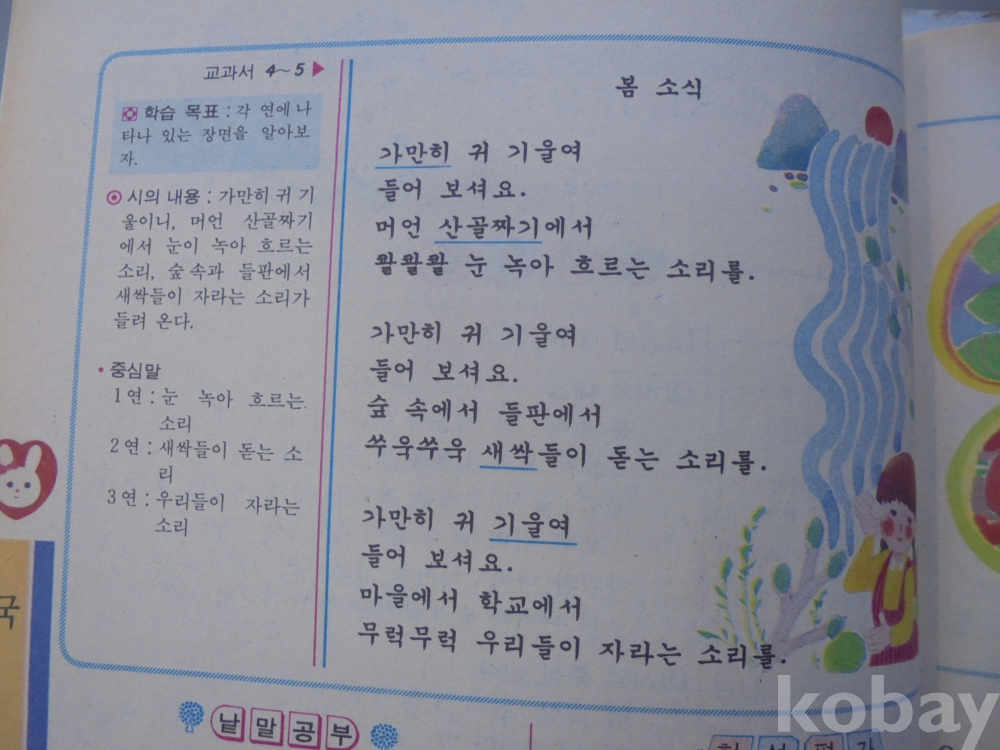 교과서 4~5 ▶
학습 목표 : 각 연에 나
타나 있는 장면을 알아보
자.
시의 내용 : 가만히 귀 기
울이니, 머언 산골짜기
에서 눈이 녹아 흐르는
소리, 숲속과 들판에서
새싹들이 자라는 소리가
들려 온다.
• 중심말
1연 : 눈 녹아 흐르는
소리
2연 : 새싹들이 돋는 소
리
3연 : 우리들이 자라는
소리
봄 소식
가만히 귀 기울여
들어 보셔요.
머언 산골짜기에서
콸콸콸 눈 녹아 흐르는 소리를.
가만히 귀 기울여
들어 보셔요.
숲 속에서 들판에서
쑤욱쑤욱 새싹들이 돋는 소리를.
가만히 귀 기울여
들어 보셔요.
마을에서 학교에서
무럭무럭 우리들이 자라는 소리를.
국
낱말공부
kobay